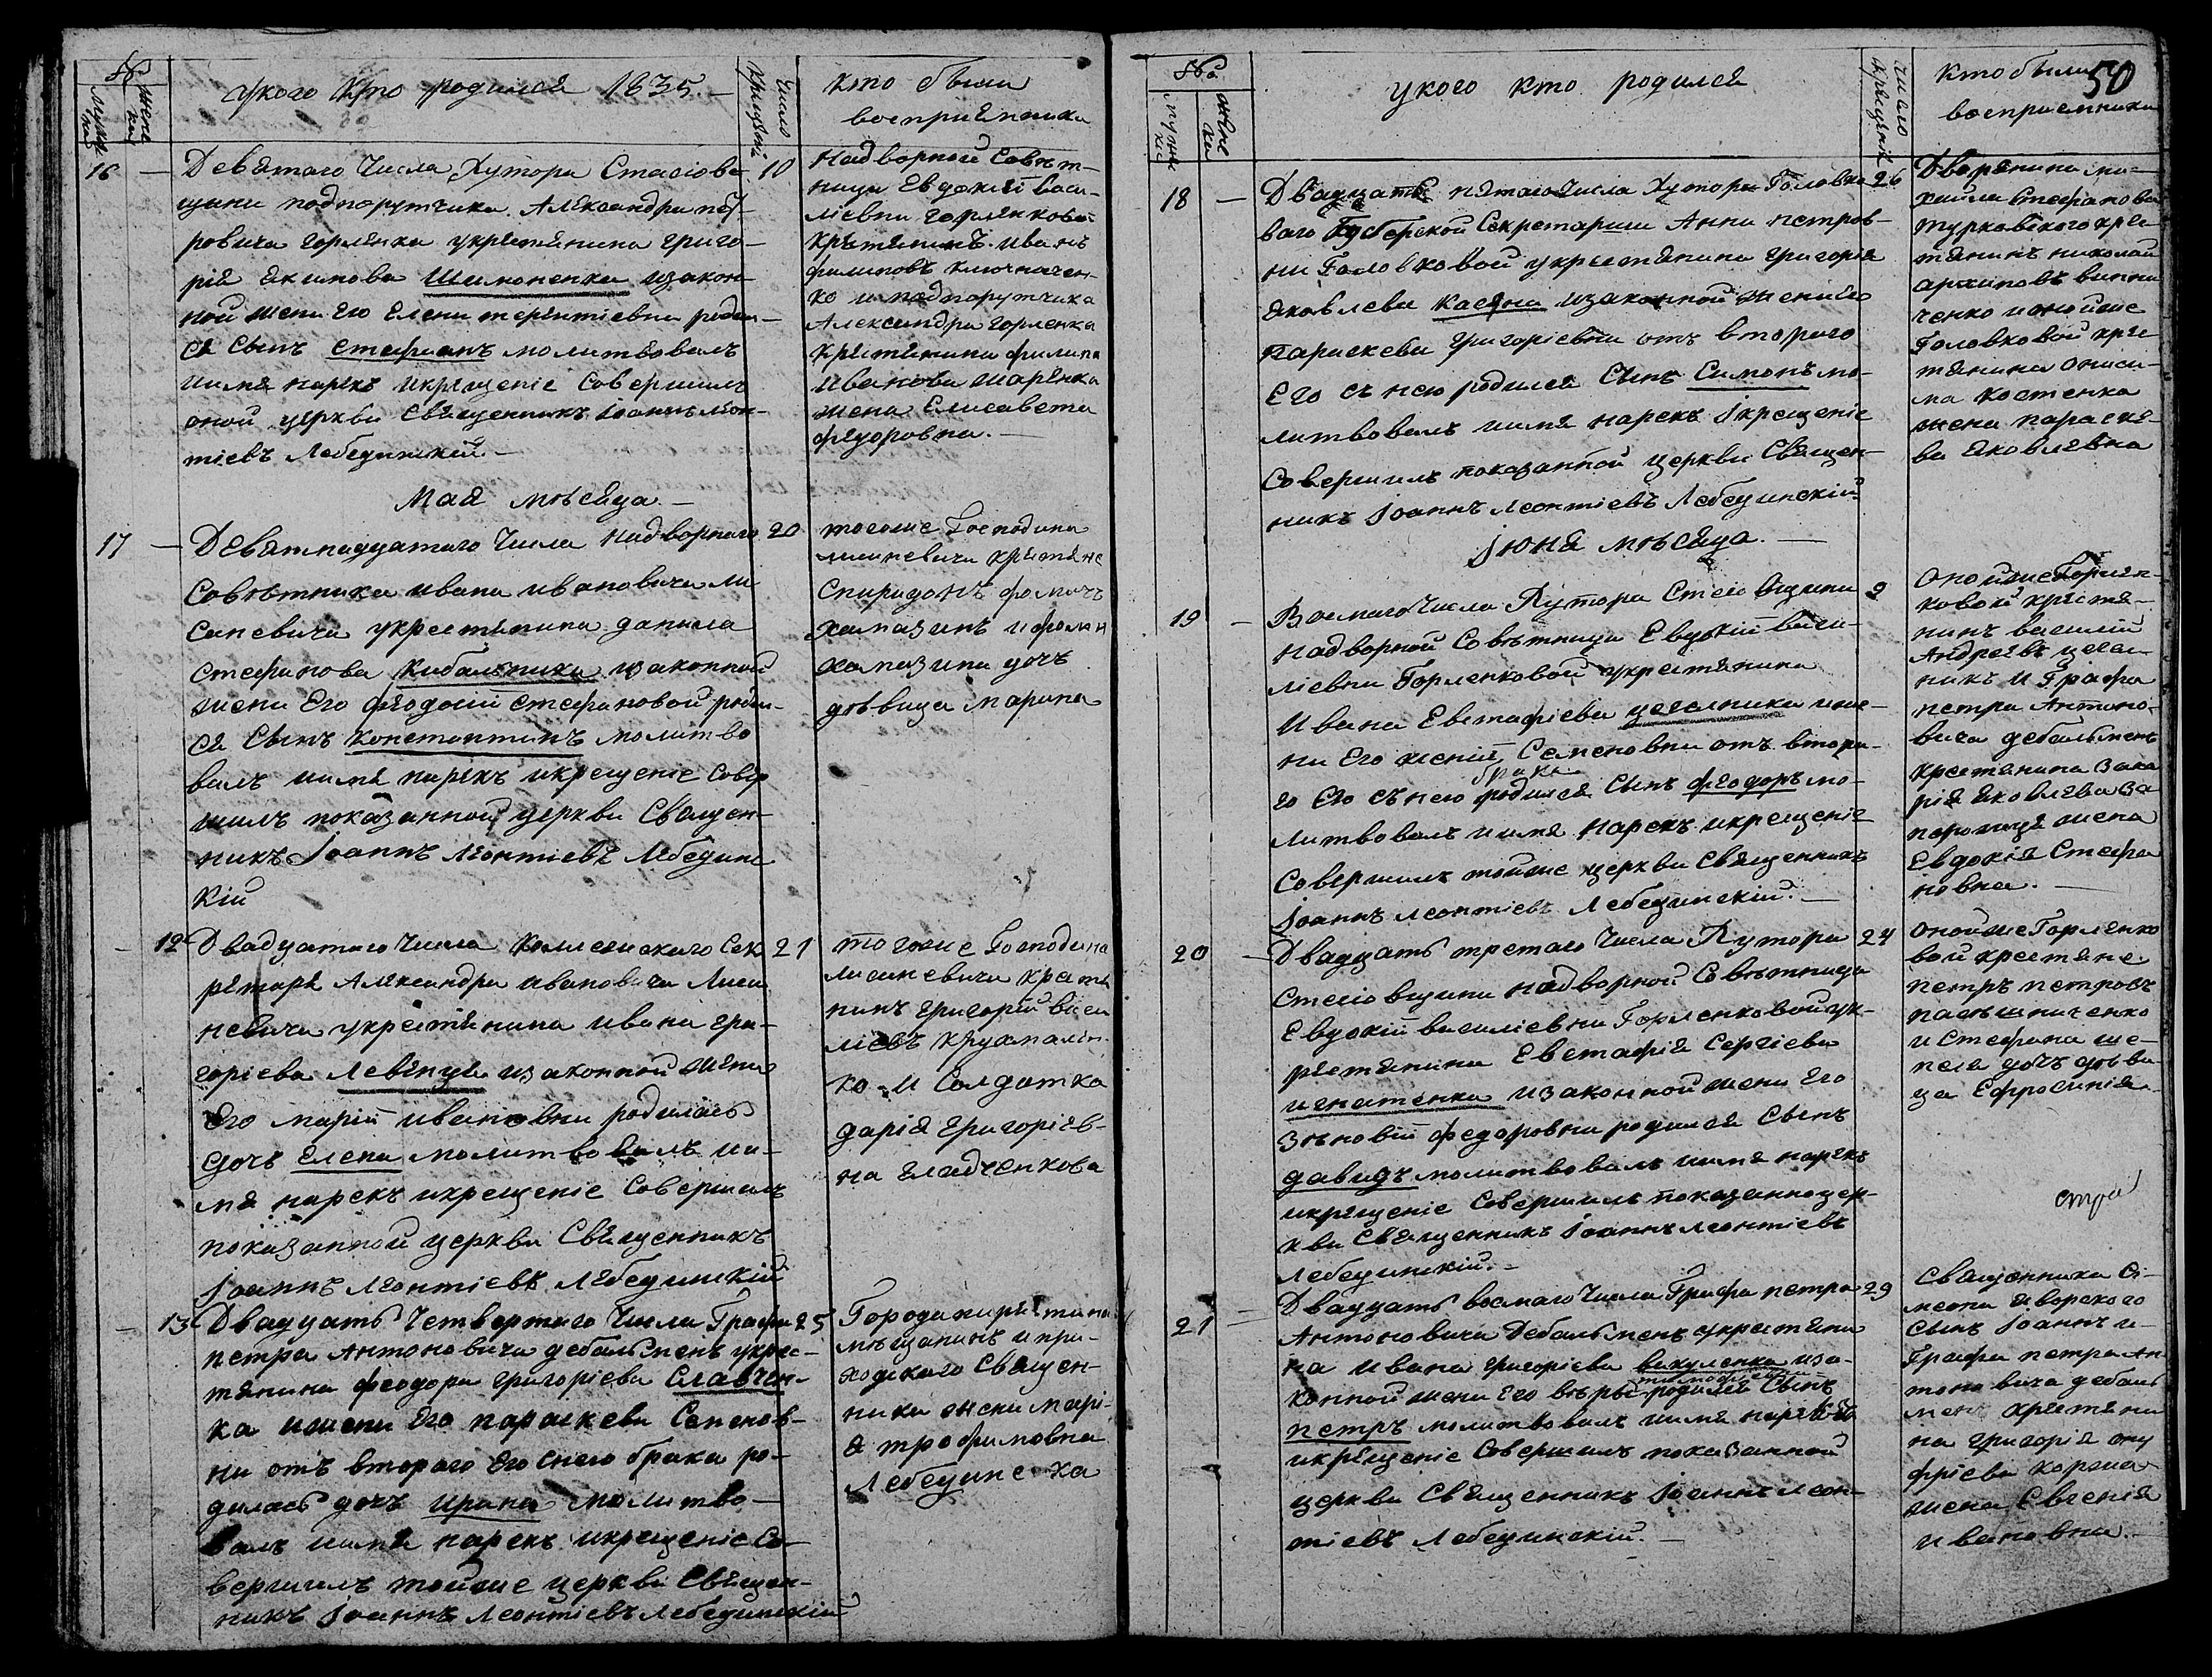 №
мужеска
женска
у кого кто родился 1835
Число крещенія
кто были
воспріемники
16 — Девятаго Числа Хутора Стасіов- 10
щини подпорутчика Александра пет-
ровича горленка укрестянина григо-
рія Екимова Шимоненка изакон-
ной жени Его Елени терентіевни роди-
ся сынъ Стефанъ молитвовалъ
иимя нарекъ икрещеніе Совершилъ
оной церкви Священникъ Іоаннъ леон-
тіевъ Лебединскій —
Надворной Совѣт-
ници Евдокій васи-
ліевни горленковой
крѣстянинъ иванъ
филиповъ
ко иподпорутчика
Александра горленка
крестянина филипа
иванова шаренка
жена Елисавета
федоровна. —
Мая мѣсяца —
17 — Девятнадцатаго Числа надворнаго 20
Совѣтника ивана ивановича ли-
саневича укрестянина данила
стефанова Кибальника изаконной
жени Его феодосій стефановой роди-
ся Сынъ Константинъ молитво
валъ иимя нарекъ икрещеніе Совер
шилъ показанной церкви Священ-
никъ Іоаннъ леонтіевъ лебединс
кій
тогоже Господина
лисаневича крестяне
Спиридонъ фомичъ
хамазинъ ифоми
хамазина дочъ
дѣвица марина
— 12 Двадцатаго Числа Колежскаго Сек 21
ретаря Александра ивановича Лиса
невича укрестянина ивана гри-
горіева левенця изаконной жени
Его маріи ивановни родиласъ
дочъ Елена молитвовалъ и-
мя нарекъ икрещеніе Совершилъ
показанной церкви Священникъ
Іоаннъ леонтіевъ лебединскій
тогоже Господина
лисаневича крестя
нинъ григорій васи
ліевъ крухмалѣн-
ко и Солдатка
дарія григоріев-
на гладченкова
— 13 Двадцатъ Четвертаго Числа Графа 25
петра Антоновича дебальменъ укрес-
тянина феодора григоріева Славчен-
ка ижени Его параскеви Семенов-
ни отъ втораго Его снею брака ро-
диласъ дочъ ирина молитво-
валъ иимя нарекъ икрещеніе Со-
вершилъ тойже церкви Священ-
никъ Іоаннъ леонтіевъ лебединскій
Города пирятина
мѣщанинъ ипри-
ходскаго Священ-
ника жени марі-
я трофимовна
Лебединска
№
мужеска
женска
у кого кто родился
Число крещенія
кто были
воспріемники
50
18 — Двадцатъ пятаго числа Хутора Головко- 26
ваго Губерской Секретарши Анни петров-
ни Головковой укрестянина григорія
яковлева Касяна изаконной жени Его
Параскеви григоріевни отъ втораго
Его съ нею родился Сынъ Симонъ мо-
литвовалъ иимя нарекъ Ікрещеніе
Совершилъ показанной церкви Священ-
никъ Іоаннъ леонтіевъ Лебединскій
Дворянина ми-
хайла стефанова
турковскаго кре-
тянинъ николай
архиповъ винни
ченко ионойже
Головковой кре-
тянина Ониси-
ма Костенка
жена параске-
ва яковлевна
Іюня мѣсяца. —
19 — Восмаго Числа Хутора Стасіовщини 9
надворной Совѣтници Евдокій васи-
ліевни Горленковой укрестянина
Ивана Евстафіева иже-
ни Его Семеновни отъ втора-
го Его съ нею брака родился Сынъ феодоръ мо-
литвовалъ иимя нарекъ икрещеніе
Совершилъ тойже церкви Священникъ
Іоаннъ леонтіевъ Лебединскій. —
Онойже Горлен-
ковой крестя-
нинъ василій
Андреевъ
никъ и Графа
петра Антоно-
вича дебальменъ
крестянина Заха
рія яковлева За
порожця жена
Евдокія Стефа
новна. —
20 — Двадцатъ третаго Числа Хутора 24
Стасіовщини надворной Совѣтници
Евдокій василіевни Горленковой ук-
рестянина Евстафія Сергіева
игнатенка изаконной жени Его
Зѣновій федоровни родился Сынъ
давидъ молитвовалъ иимя нарекъ
икрещеніе Совершилъ показанно цер-
кви Священникъ Іоаннъ леонтіевъ
Лебединскій. —
Онойже Горленко
вой крестяне
петръ петровъ
иСтефана ше-
пеля дочъ дѣви-
ца Ефросинія
21 — Двадцатъ восмаго Числа Графа петра 29
Антоновича Дебальменъ укрестяни
на ивана григоріева вакуленка иза-
конной жени Его вѣри родился Сынъ
петръ молитвовалъ иимя нарекъ
икрещеніе Совершилъ показанной
церкви Священникъ Іоаннъ леон-
тіевъ Лебединскій. —
Священника Сі-
меона яворскаго
сынъ Іоаннъ и-
Графа петра Ан
тоновича дебаль
менъ крестяни
на григорія ону
фріева
жена Евгенія
ивановна. —